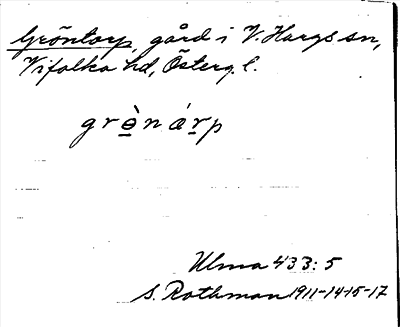 Gröntorp, gård i V. Hargs sn,
Vifolka hd, Österg. l.
grö̀nárp
Ulma 433:5
S. Rothman 1911-14-15-17